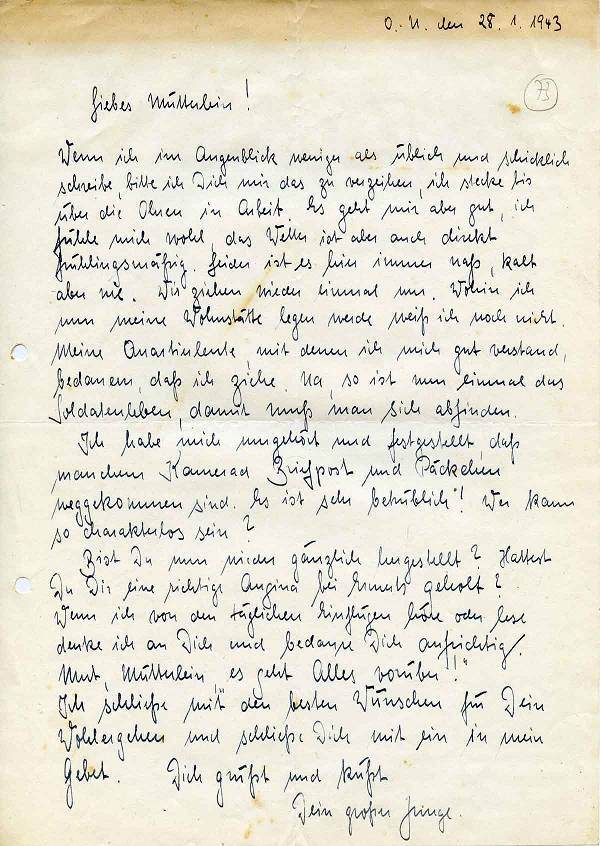 O.-U. den 28. 1. 1943
73
Liebes Mütterlein!
Wenn ich im Augenblick weniger als üblich und schicklich
schreibe, bitte ich Dich mir das zu verzeihen, ich stecke bis
über die Ohren in Arbeit. Es geht mir aber gut, ich
fühle mich wohl, das Wetter ist aber auch direkt
frühlingsmäßig. Leider ist es hier immer naß, kalt
aber nie. Wir ziehen wieder einmal um. Wohin ich
nun meine Wohnstätte legen werde weiß ich noch nicht.
Meine Quartiersleute, mit denen ich mich gut verstand,
bedauern, daß ich ziehe. Na, so ist nun einmal das
Soldatenleben, damit muß man sich abfinden.
Ich habe mich umgehört und festgestellt, daß
manchem Kamerad Briefpost und Päckchen
weggekommen sind. Es ist sehr betrüblich! Wer kann
so charakterlos sein?
Bist Du nun wieder gänzlich hergestellt? Hattest
Du Dir eine richtige Angina bei geholt?
Wenn ich von den täglichen Einflügen höre oder lese
denke ich an Dich und bedaure Dich aufrichtig.
Mut, Mütterlein, „es geht Alles vorüber!"
Ich schließe mit den besten Wünschen für Dein
Wohlergehen und schließe Dich mit ein in mein
Gebet. Dich grüßt und küßt
Dein großer Junge.